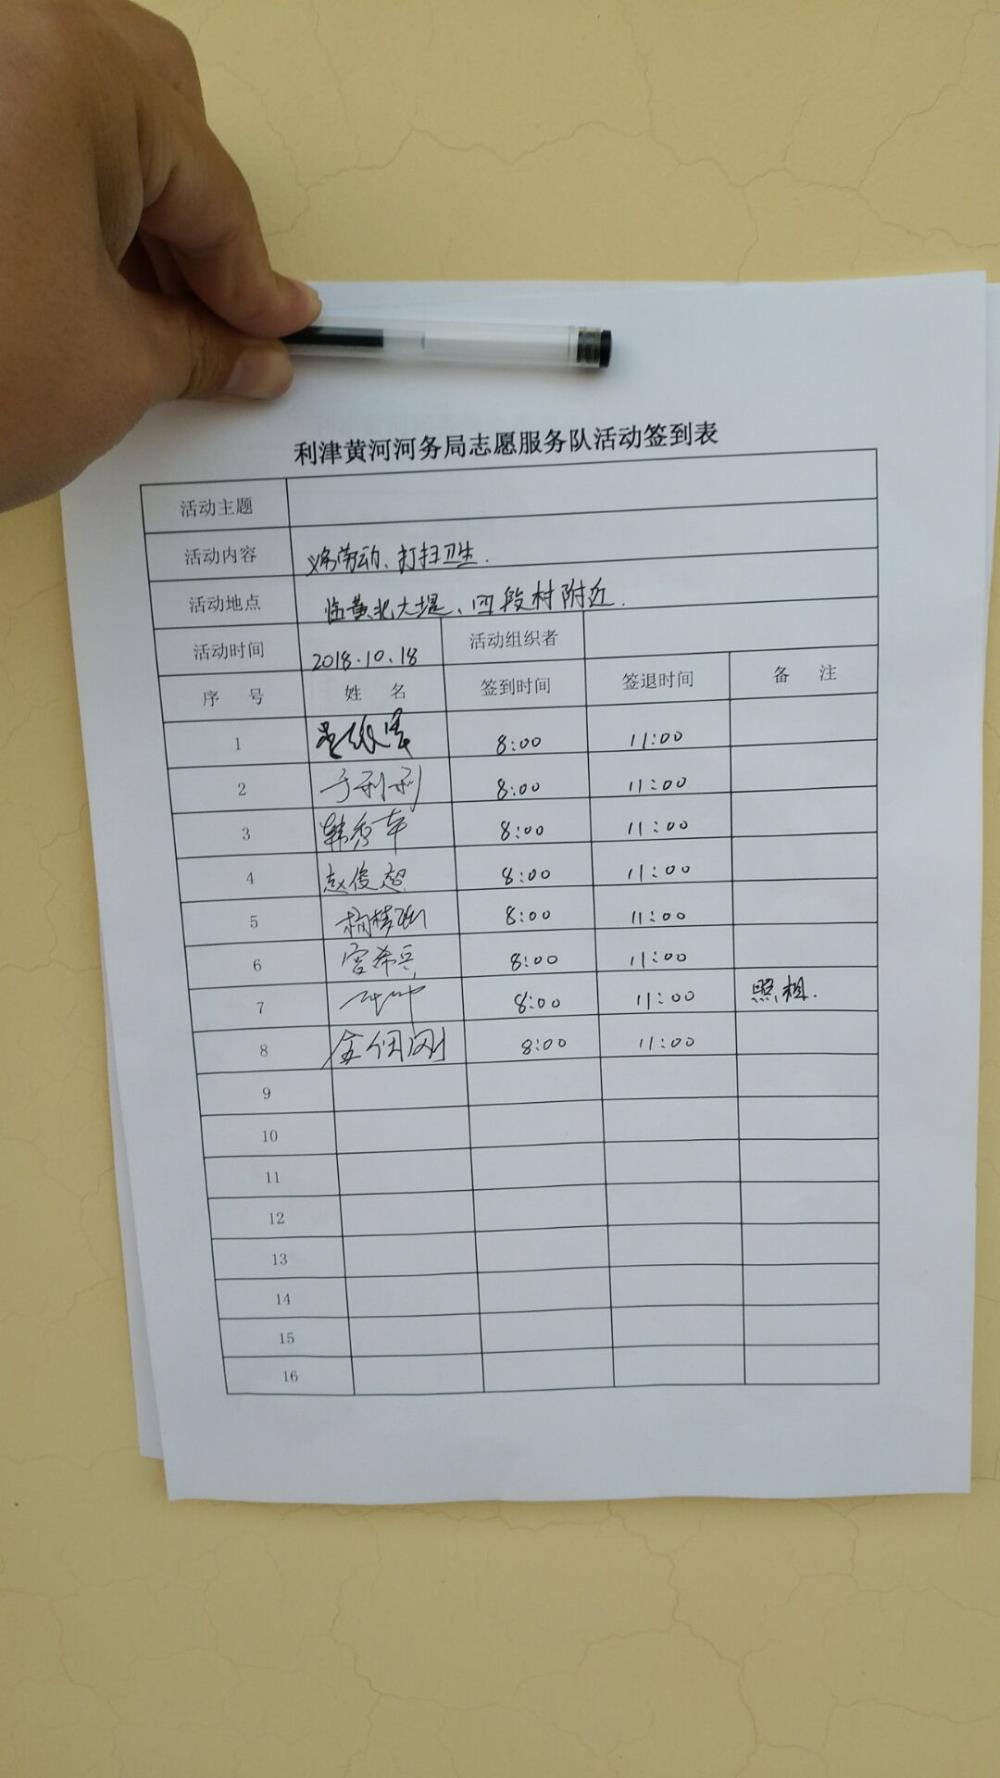 利津黄河河务局志愿服务队活动签到表
活动主题
活动内容 义务劳动、打扫卫生.
活动地点 临黄北大堤、四段村附近.
活动时间 2018.10.18 活动组织者
序 号 姓 名 签到时间 签退时间 备 注
1 8:00 11:00
2 于利利 8:00 11:00
3 韩秀军 8:00 11:00
4 赵俊超 8:00 11:00
5 8:00 11:00
6 宫希兵 8:00 11:00
7 8:00 11:00 照相.
8 8:00 11:00
9
10
11
12
13
14
15
16